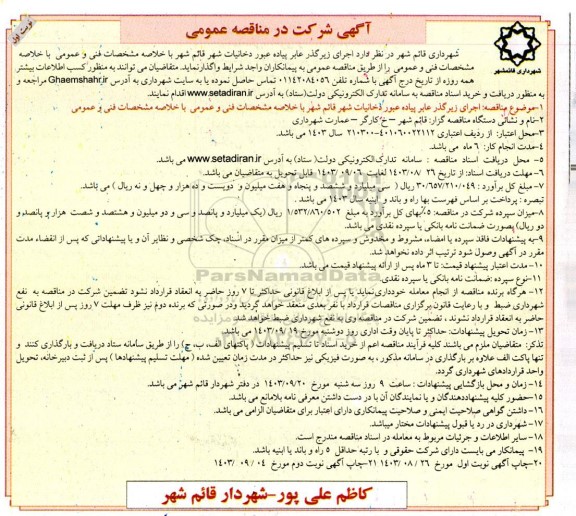 آگهی شرکت در مناقصه عمومی
نوبت اول
شهرداری قائمشهر
شهرداری قائم شهر در نظر دارد اجرای زیرگذر عابر پیاده عبور دخانیات شهر قائم شهر با خلاصه مشخصات فنی و عمومی با خلاصه
مشخصات فنی و عمومی را از طریق مناقصه عمومی به پیمانکاران واجد شرایط واگذار نماید. متقاضیان می توانند به منظور کسب اطلاعات بیشتر
همه روزه از تاریخ درج آگهی با شماره تلفن: ۰۱۱۴۲۰۸۴۰۵۶ تماس حاصل نموده یا به سایت شهرداری به آدرس Ghaemshahr.ir مراجعه و
به منظور دریافت و خرید اسناد مناقصه به سامانه تدارک الکترونیکی دولت(ستاد) به آدرس www.setadiran.ir اقدام نمایند.
۱-موضوع مناقصه: اجرای زیرگذر عابر پیاده عبور دخانیات شهر قائم شهر با خلاصه مشخصات فنی و عمومی با خلاصه مشخصات فنی و عمومی
۲-نام و نشانی دستگاه مناقصه گزار: قائم شهر –خ کارگر –عمارت شهرداری
۳-محل اعتبار: از ردیف اعتباری ۴۰۱۰۶۰۰۲۲۱۱۲-۲۱۰۳۰۰ سال ۱۴۰۳ می باشد.
۴-مدت انجام کار: ۶ ماه می باشد.
۵- محل دریافت اسناد مناقصه : سامانه تدارک الکترونیکی دولت( ستاد) به آدرس www.setadiran.ir می باشد.
۶- مهلت دریافت اسناد: از تاریخ ۲۶ /۱۴۰۳/۰۸ لغایت ۱۴۰۳/۰۹/۰۶ قابل تحویل به متقاضیان می باشد.
۷- مبلغ کل برآورد : ۳۰/۶۵۷/۲۱۰/۰۴۹ ریال ( سی میلیارد و ششصد و پنجاه و هفت میلیون و دویست و ده هزار و چهل و نه ریال ) می باشد.
تبصره : پرداخت بر اساس فهرست بها راه و باند و ابنیه سال ۱۴۰۳ می باشد.
۸-میزان سپرده شرکت در مناقصه: ۵٪بهای کل برآورد به مبلغ ۱/۵۳۲/۸۶۰/۵۰۲ ریال (یک میلیارد و پانصد و سی و دو میلیون و هشتصد و شصت هزار و پانصد و
دو ریال) بصورت ضمانت نامه بانکی یا سپرده نقدی می باشد.
۹-به پیشنهادات فاقد سپرده یا امضاء، مشروط و مخدوش و سپرده های کمتر از میزان مقرر در اسناد، چک شخصی و نظایر آن و یا پیشنهاداتی که پس از انقضاء مدت
مقرر در آگهی وصول شود ترتیب اثر داده نخواهد شد.
۱۰-مدت اعتبار پیشنهاد قیمت: تا ۳ ماه پس از ارائه پیشنهاد قیمت می باشد.
۱۱-نوع سپرده :ضمانت نامه بانکی یا سپرده نقدی.
۱۲- هرگاه برنده مناقصه از انجام معامله خودداری نماید یا پس از ابلاغ قانونی حداکثر تا ۷ روز حاضر به انعقاد قرارداد نشود تضمین شرکت در مناقصه به نفع
شهرداری ضبط و با رعایت قانون برگزاری مناقصات قرارداد با نفر بعدی منعقد خواهد گردید و در صورتی که برنده دوم نیز ظرف مهلت ۷ روز پس از ابلاغ قانونی
حاضر به انعقاد قرارداد نشوند ، تضمین شرکت در مناقصه وی به نفع شهرداری ضبط خواهد شد.
۱۳- زمان تحویل پیشنهادات: حداکثر تا پایان وقت اداری روز دوشنبه مورخ ۱۴۰۳/۰۹/۱۹ می باشد.
تذکر: متقاضیان ملزم می باشند کلیه فرآیند مناقصه اعم از خرید اسناد تا تسلیم پیشنهادات ( پاکتهای الف، ب، ج) را از طریق سامانه ستاد دریافت و بارگذاری کنند و
تنها پاکت الف علاوه بر بارگذاری در سامانه مذکور ، به صورت فیزیکی نیز حداکثر در مدت زمان تعیین شده ( مهلت تسلیم پیشنهادها ) پس از ثبت دبیرخانه، تحویل
واحد قراردادهای شهرداری گردد.
۱۴- زمان و محل بازگشایی پیشنهادات : ساعت ۹ روز سه شنبه مورخ ۱۴۰۳/۰۹/۲۰ در دفتر شهردار قائم شهر می باشد.
۱۵-حضور کلیه پیشنهاددهندگان و یا نمایندگان آن با در دست داشتن معرفی نامه بلامانع می باشد.
۱۶- داشتن گواهی صلاحیت ایمنی و صلاحیت پیمانکاری دارای اعتبار برای متقاضیان الزامی می باشد.
۱۷-شهرداری در رد یا قبول پیشنهادات مختار میباشد.
۱۸- سایر اطلاعات و جزئیات مربوط به معامله در اسناد مناقصه مندرج است.
۱۹- پیمانکار می بایست دارای شرکت حقوقی و با رتبه حداقل ۵ راه و باند یا ابنیه باشد.
۲۰-چاپ آگهی نوبت اول مورخ ۲۶ /۰۸ /۱۴۰۳ ۲۱-چاپ آگهی نوبت دوم مورخ ۰۴ /۰۹ /۱۴۰۳
کاظم علی پور-شهردار قائم شهر
ParsNamadData